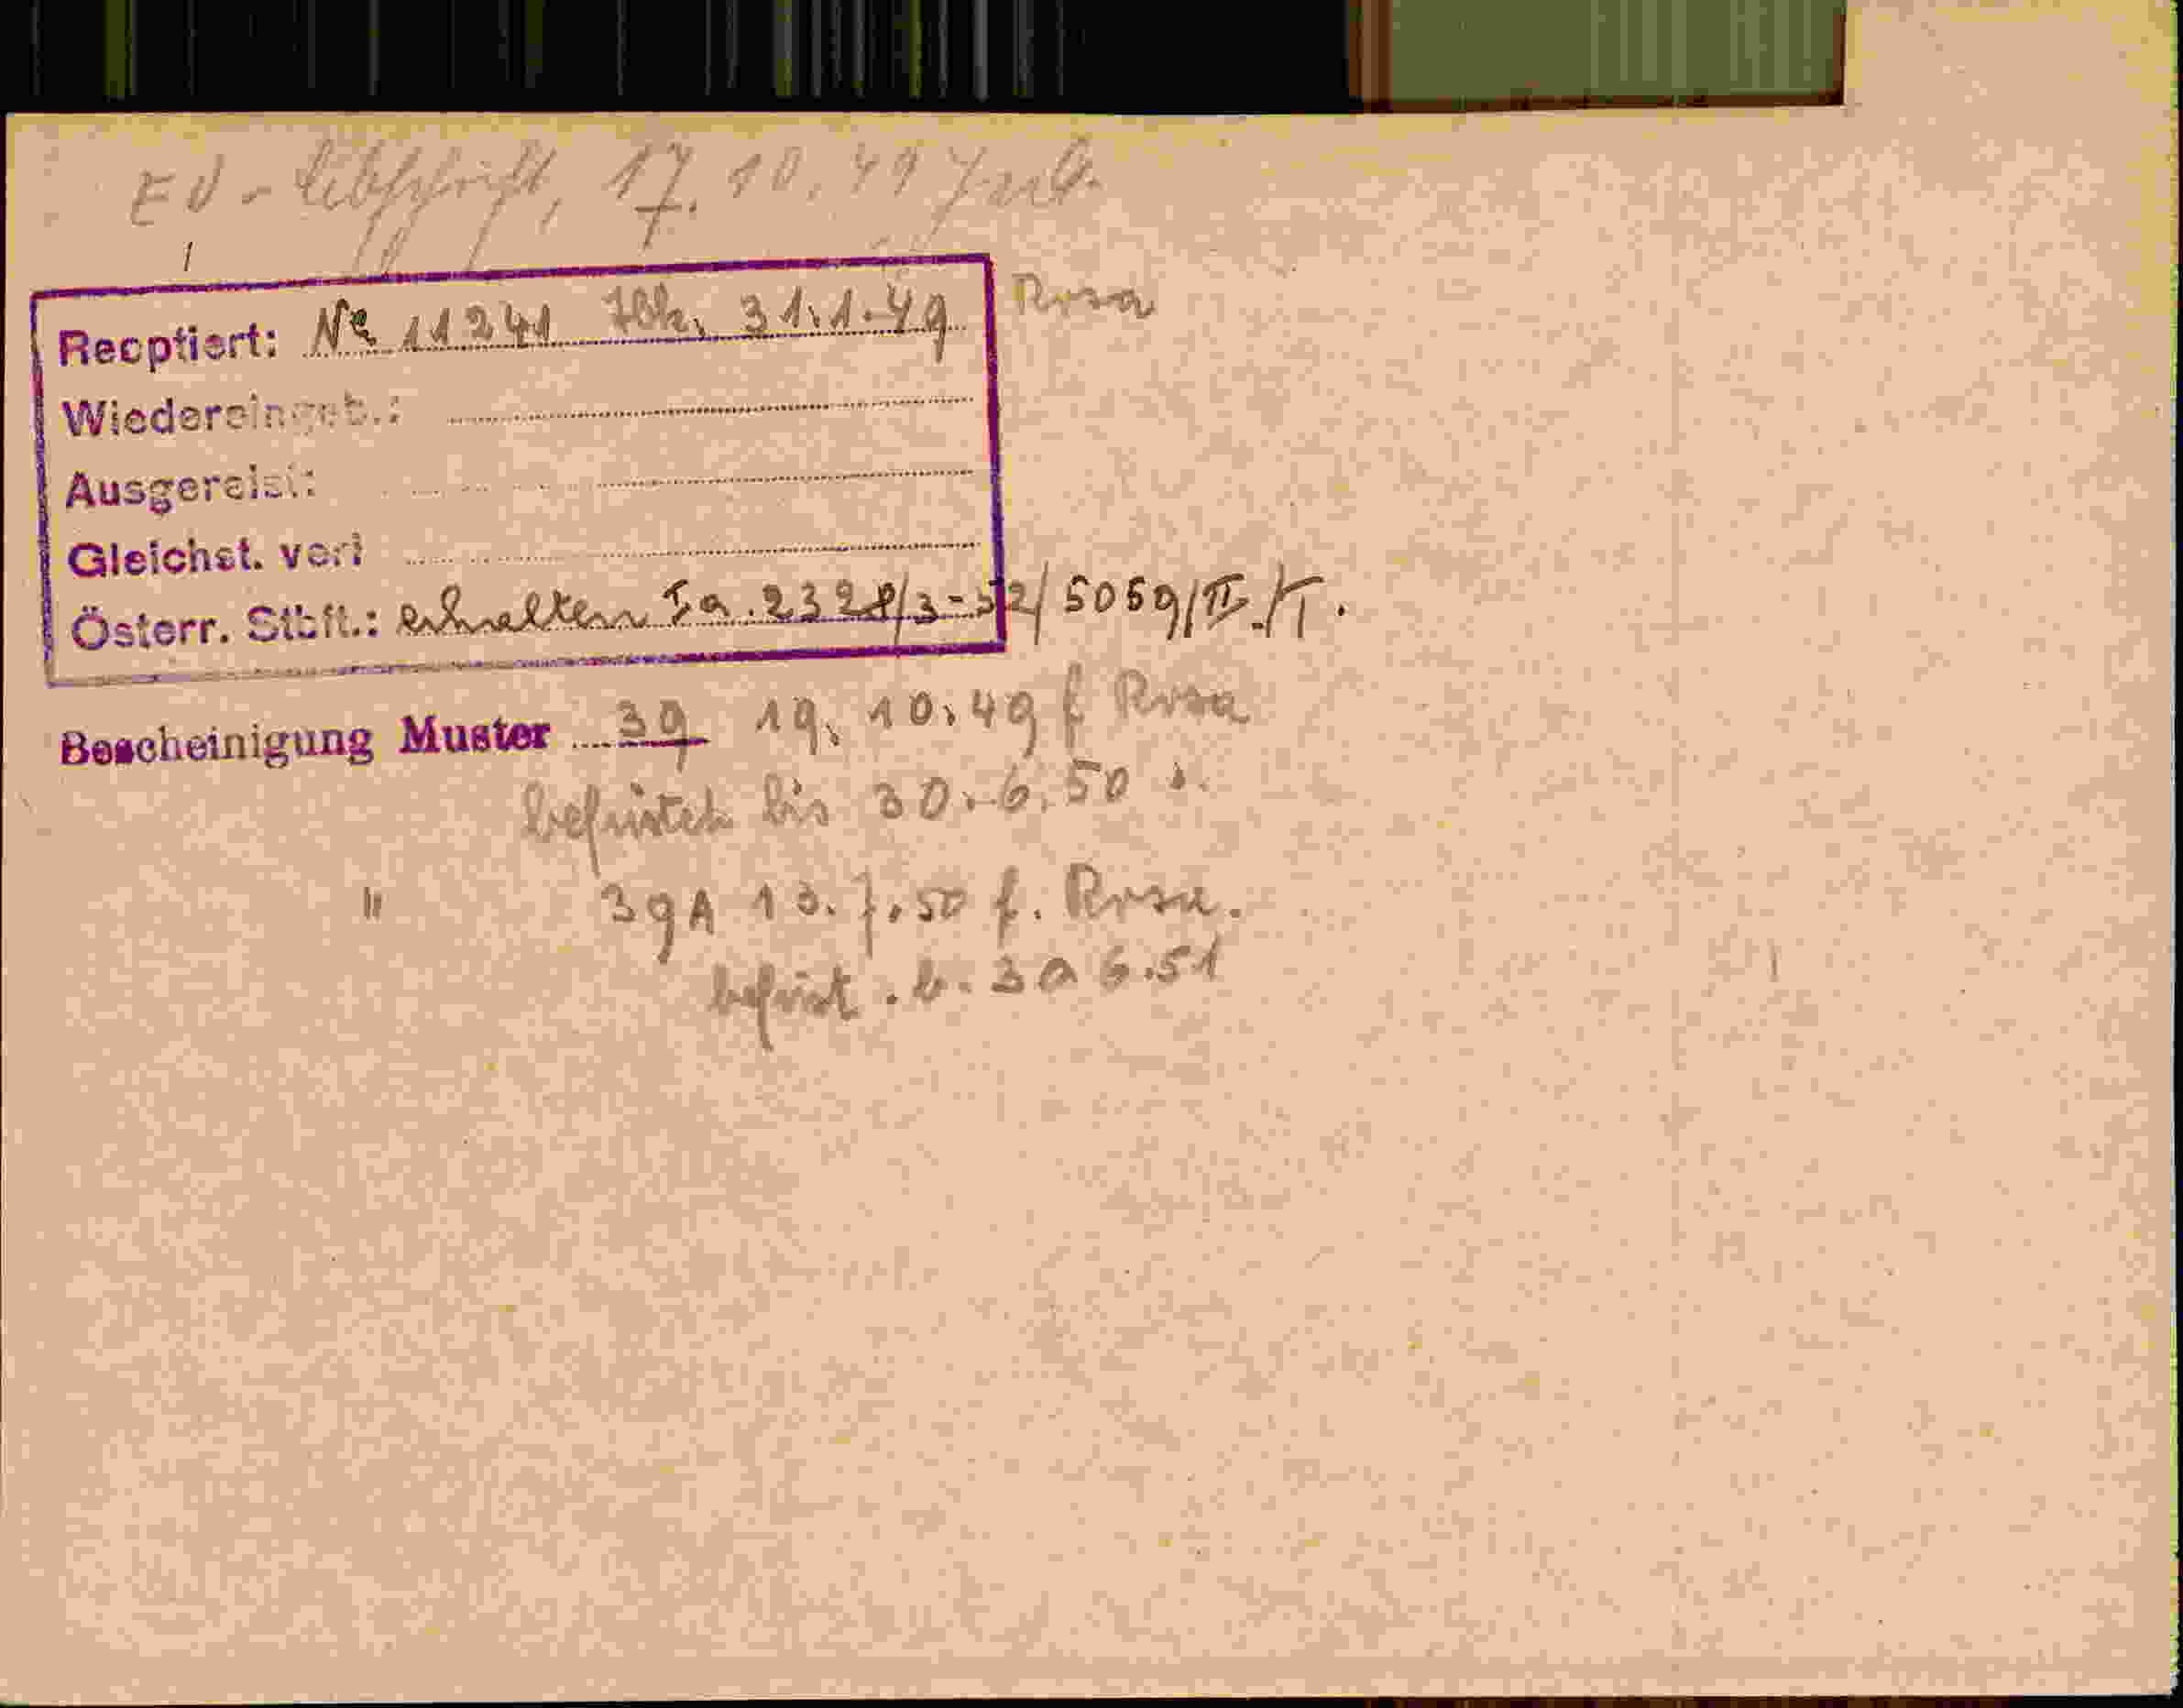 EV - Abschrift, 17. 10. 49
Recptiert: № 11241 31.1.49 Rosa
Wiedereingeb.:
Ausgereist:
Gleichst. verl
Österr. Stbft.: erhalten Ia. 2328/3-52/5059/II./T.
Bescheinigung Muster 39 19. 10. 49 f Rosa
befristet bis 30. 6. 50
" 39A 13. 7. 50 f. Rosa.
befrist. b. 30 6. 51